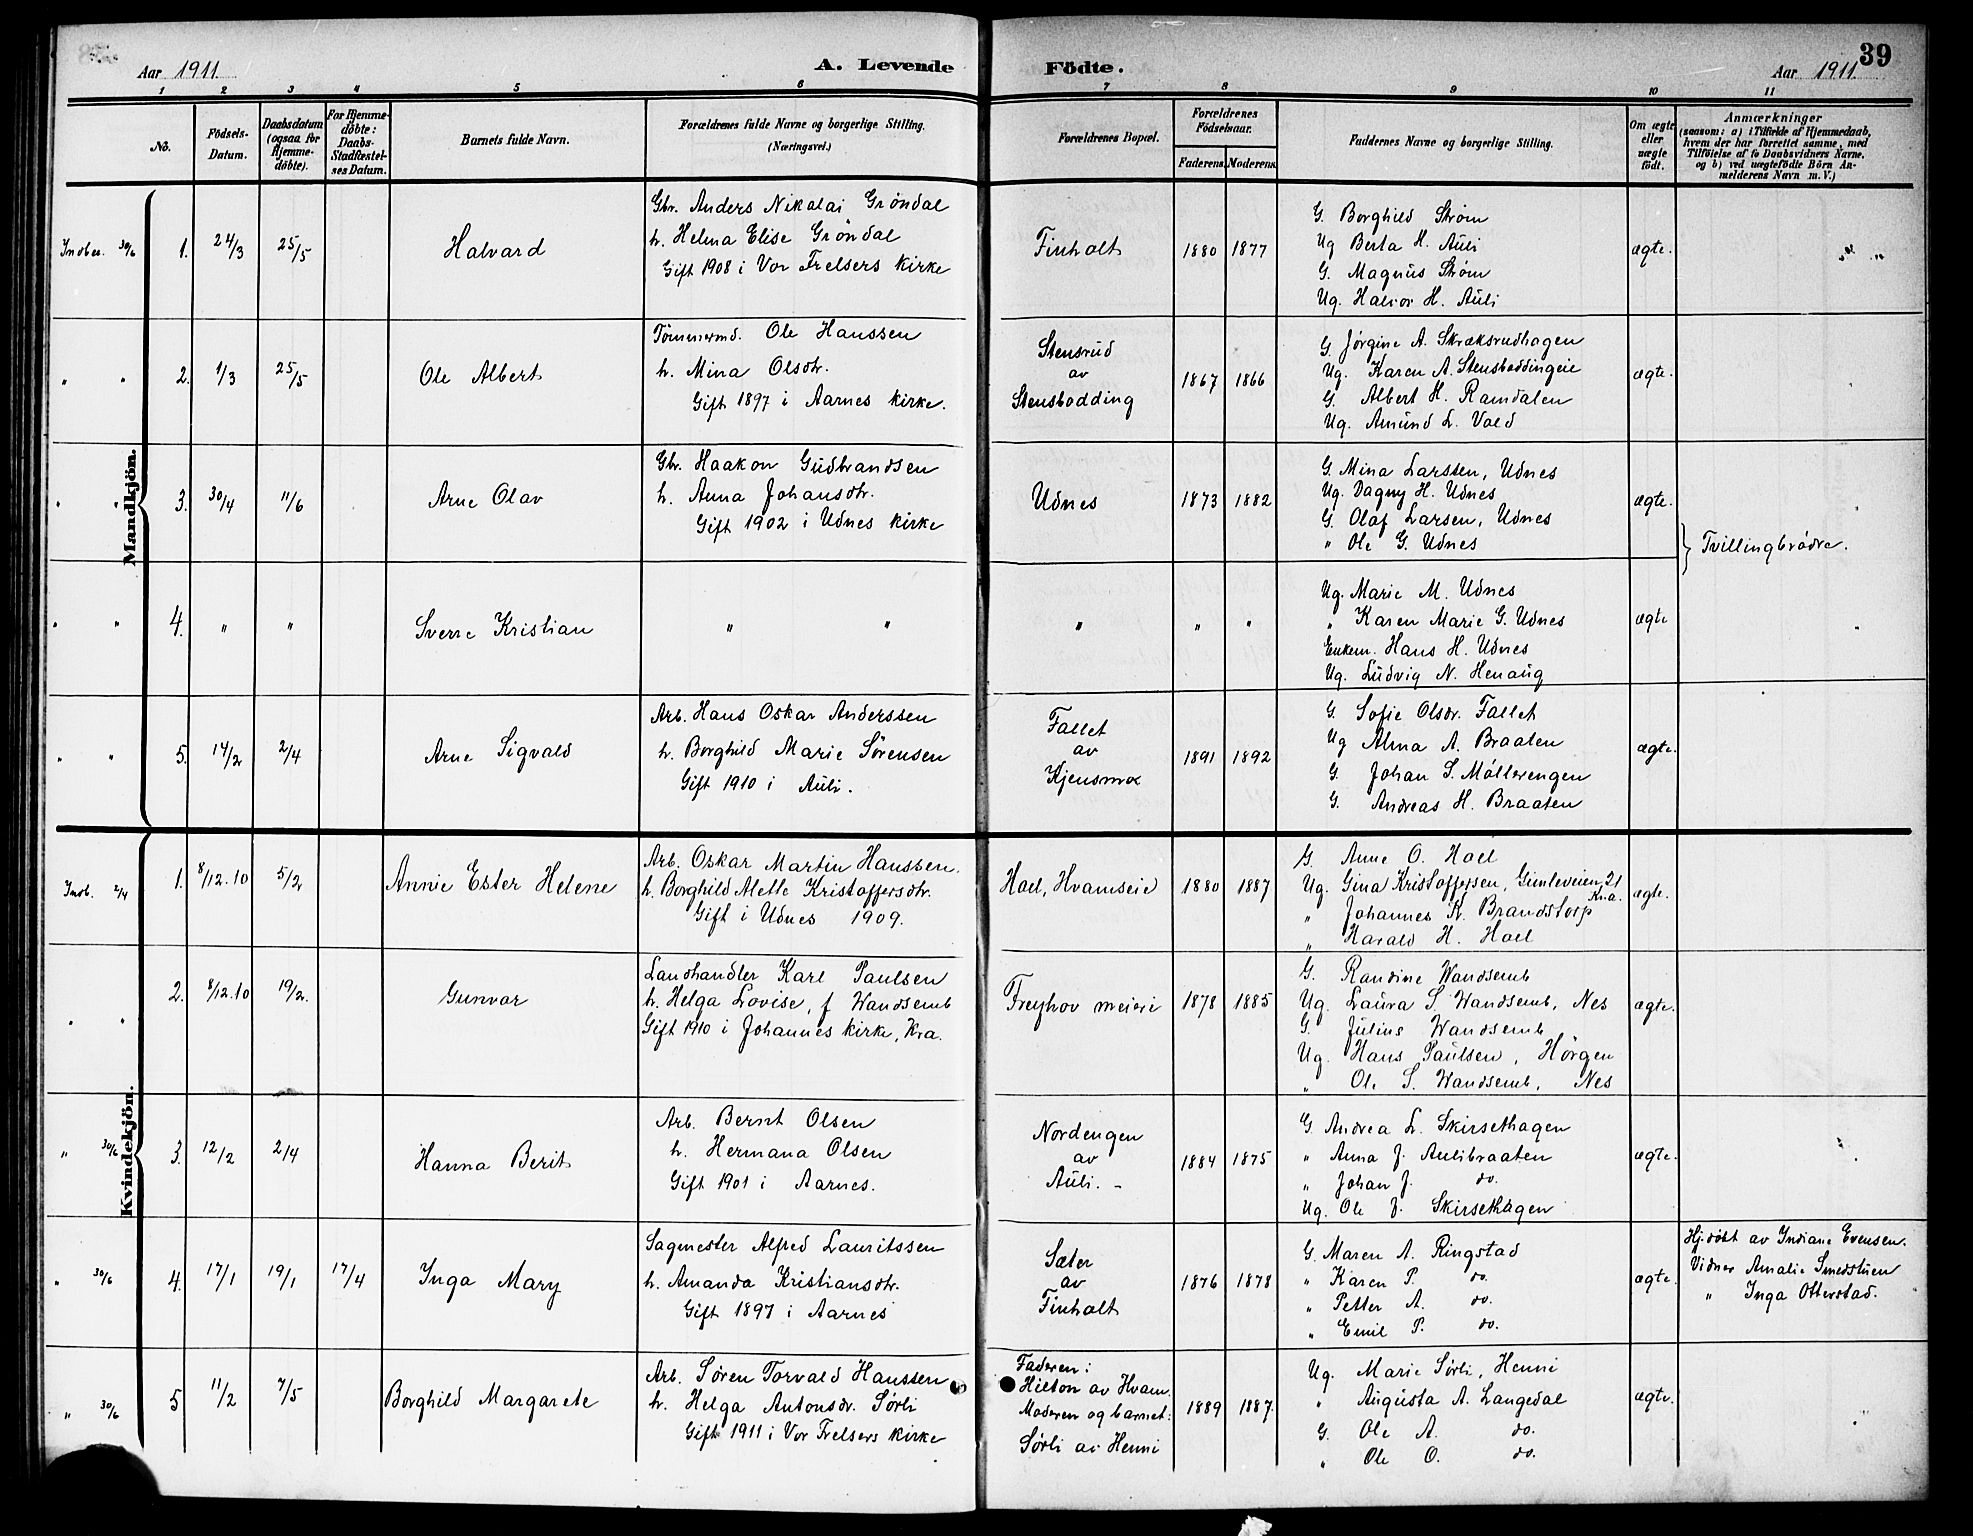 39
Aar 1911. A. Levende Födte. Aar 1911.
1 2 3 4 5 6 7 8 9 10 11
No. Födsels-Datum. Daabsdatum (ogsaa for Hjemme-döbte). For Hjemme-döbte: Daabs-Stadfæstel-ses Datum. Barnets fulde Navn. Forældrenes fulde Navne og borgerlige Stilling. (Næringsvei.) Forældrenes Bopæl. Forældrenes Födselsaar. Faderens. Moderens. Faddernes Navne og borgerlige Stilling. Om ægte eller uægte födt. Anmærkninger (saasom: a) i Tilfælde af Hjemmedaab, hvem der har forrettet samme, med Tilföielse af to Daabsvidners Navne, og b) ved uægtefödte Börn An-melderens Navn m. V.)
Mandkjön.
Indber. 30/6 1. 24/3 25/5 Halvard
Gbr. Anders Nikolai Grøndal
h. Helma Elise Grøndal
Gift 1908 i Vor Frelsers kirke
Finholt 1880 1877
G. Borghild Strøm
Ug Berta H. Auli
G. Magnus Strøm
Ug. Halvor H. Auli
ægte.
" " 2. 1/3 25/5 Ole Albert
Tømmermd. Ole Hanssen
h. Mina Olsdtr.
Gift 1897 i Aarnes kirke.
Stensrud
av
Stensbodding
1867 1866
G. Jørgine A. Skræksrudhagen
Ug. Karen A. Stensboddingeie
G. Albert H. Ramdalen
Ug. Amund L. Vold
ægte.
" " 3. 30/4 11/6 Arne Olav
Gbr. Haakon Gudbrandsen
h. Anna Johansdtr.
Gift 1902 i Udnes kirke
Udnes 1873 1882
G. Mina Larssen, Udnes
Ug. Dagny H. Udnes
G. Olaf Larsen, Udnes
" Ole G. Udnes
ægte.
Tvillingbrødre.
" " 4. " " Sverre Kristian " " " " "
Ug. Marie M. Udnes
" Karen Marie G. Udnes
Enkem. Hans H. Udnes
Ug. Ludvig N. Henaug
ægte
" " 5. 14/2 2/4 Arne Sigvald
Arb. Hans Oskar Anderssen
h. Borghild Marie Sørensen
Gift 1910 i Auli.
Fallet
av
Kjensmo
1891 1892
G. Sofie Olsdr. Fallet
Ug Alma A. Braaten
G. Johan S. Møllerengen
G. Andreas H. Braaten
ægte.
Kvindekjön.
Indb. 2/4 1. 8/12.10 5/2 Annie Ester Helene
Arb. Oskar Martin Hanssen.
h. Borghild Alette Kristoffersdtr.
Gift i Udnes 1909.
Hoel, Hvamseie 1880 1887
G. Anne O. Hoel
Ug. Gina Kristoffersen, Gimleveien 21 Kra.
" Johannes K. Brandstorp
" Harald H. Hoel
ægte.
" " 2. 8/12.10 19/2. Gunvor
Landhandler Karl Paulsen
h. Helga Lovise, f Wandsemb
Gift 1910 i Johannes kirke, Kra.
Freyhov meieri 1878 1885
G. Randine Wandsemb
Ug. Laura S. Wandsemb, Nes
G. Julius Wandsemb
Ug. Hans Paulsen, Hørgen
" Ole S. Wandsemb, Nes
ægte.
" 30/6 3. 12/2 2/4 Hanna Berit
Arb. Bernt Olsen
h. Hermana Olsen
Gift 1901 i Aarnes.
Nordengen
av
Auli.
1884 1875
G. Andrea L. Skirsethagen
" Anna J. Aulibraaten
" Johan J. do.
Ug. Ole J. Skirsethagen
ægte.
" 30/6 4. 17/1 19/1 17/4 Inga Mary
Sagmester Alfred Lauritssen
h. Amanda Kristiansdtr.
Gift 1897 i Aarnes
Sæter
av
Finholt
1876 1878
G. Maren A. Ringstad
" Karen P. do.
" Petter A. do.
" Emil P. do.
ægte.
Hj.døbt av Indiane Evensen.
Vidner Amalie Smedstuen
" Inga Otterstad.
" 30/6 5 11/2 7/5 Borghild Margarete
Arb. Søren Torvald Hanssen
h. Helga Antonsdr. Sørli
Gift 1911 i Vor Frelsers kirke
Faderen:
Hilton av Hvam.
Moderen og barnet:
Sørli av Henni
1889 1887.
Ug. Marie Sørli, Henni
" Augusta A. Langedal
G. Ole A. do.
" Ole O. do.
ægte.